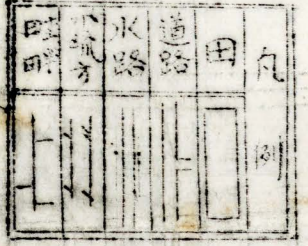 凡例
田
道路
水路
水流方
畦畔